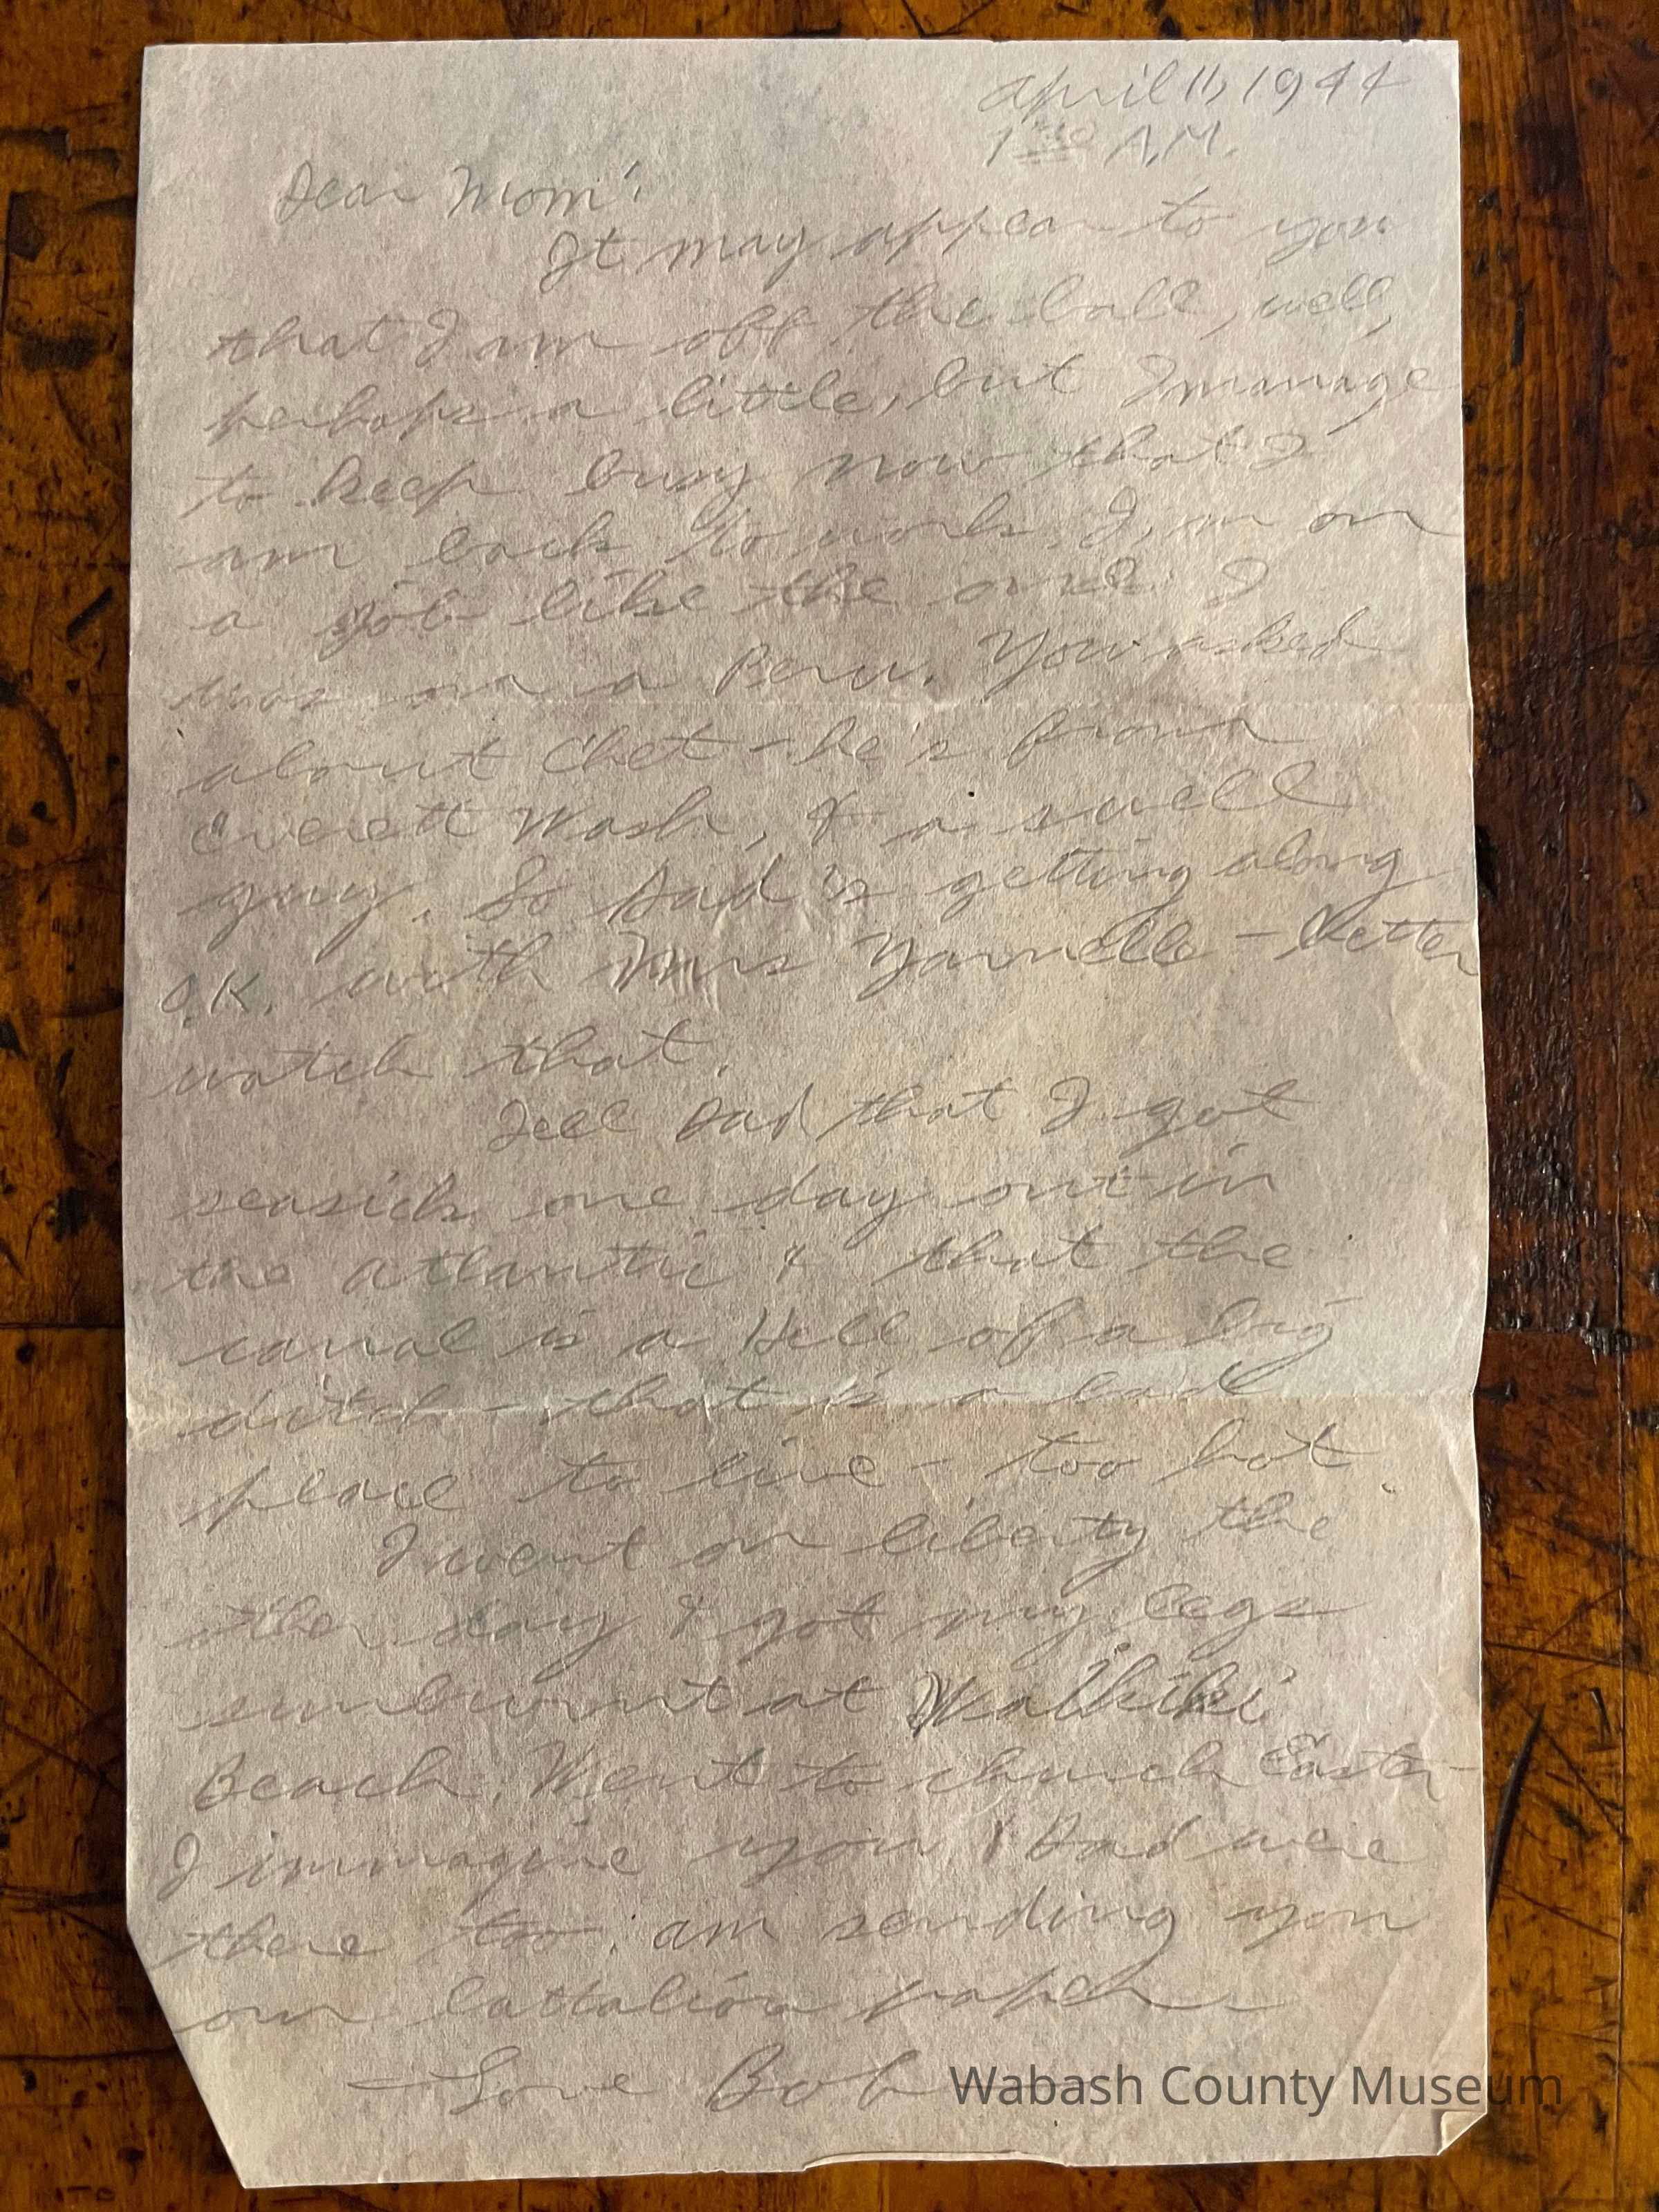 April 11, 1944
1:30 A.M.
Dear Mom:
It may appear to you
that I am off the ball, well,
perhaps a little, but I manage
to keep busy now that I
am back to work. I'm on
a job like the one I
was on a Peru. You asked
about Chet - he's from
Everett Wash, & a swell
guy. So Dad is getting along
O.K. with Mrs Yarnelle - better
watch that.
Tell Dad that I got
seasick one day out in
the atlantic & that the
canal is a Hell of a big
ditch - that is a bad
place to live - too hot.
I went on liberty the
other day & got my legs
sunburnt at Waikiki
Beach. Went to church Easter -
I immagine you & Dad were
there too. am sending you
our battalion paper
- Love Bob
Wabash County Museum